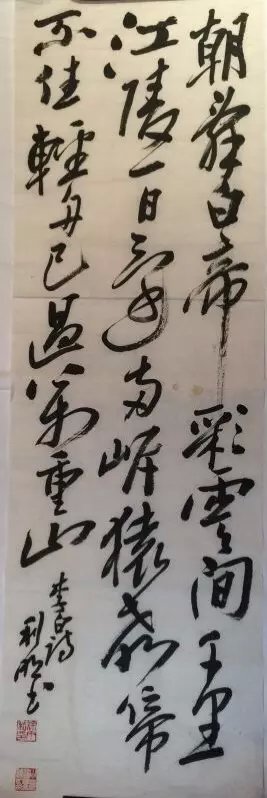 朝辞白帝彩雲间千里
江陵一日还两岸猿声啼
不住輕舟已過萬重山
李白詩
利 书